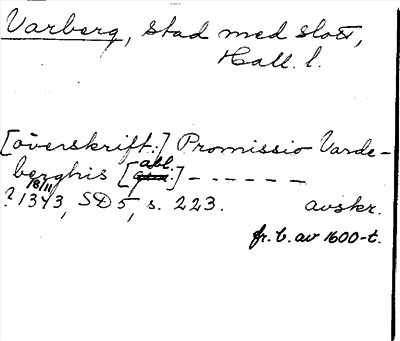 Varberg, stad med slott,
Hall. l.
[överskrift:] Promissio Varde-
berghis [abl.] - - - - - -
18/11
? 1343, SD 5, s. 223. avskr.
fr. b. av 1600-t.